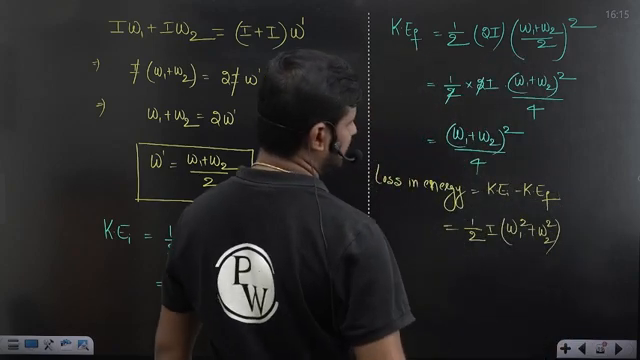 Iω₁ + Iω₂ = (I+I)ω'
⇒ I(ω₁+ω₂) = 2Iω'
⇒ ω₁+ω₂ = 2ω'
ω' = (ω₁+ω₂)/2
K·Eᵢ = 1/
=
K·E_f = 1/2 (2I) ((ω₁+ω₂)/2)²
= 1/2 × 2I (ω₁+ω₂)²/4
= (ω₁+ω₂)²/4
Loss in energy = K·Eᵢ − K·E_f
= 1/2 I (ω₁² + ω₂²)
PW
16:15